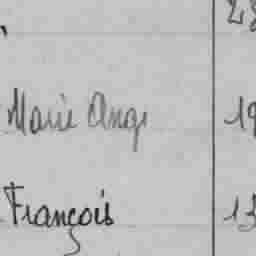 28
Marie Ange 19
François 13